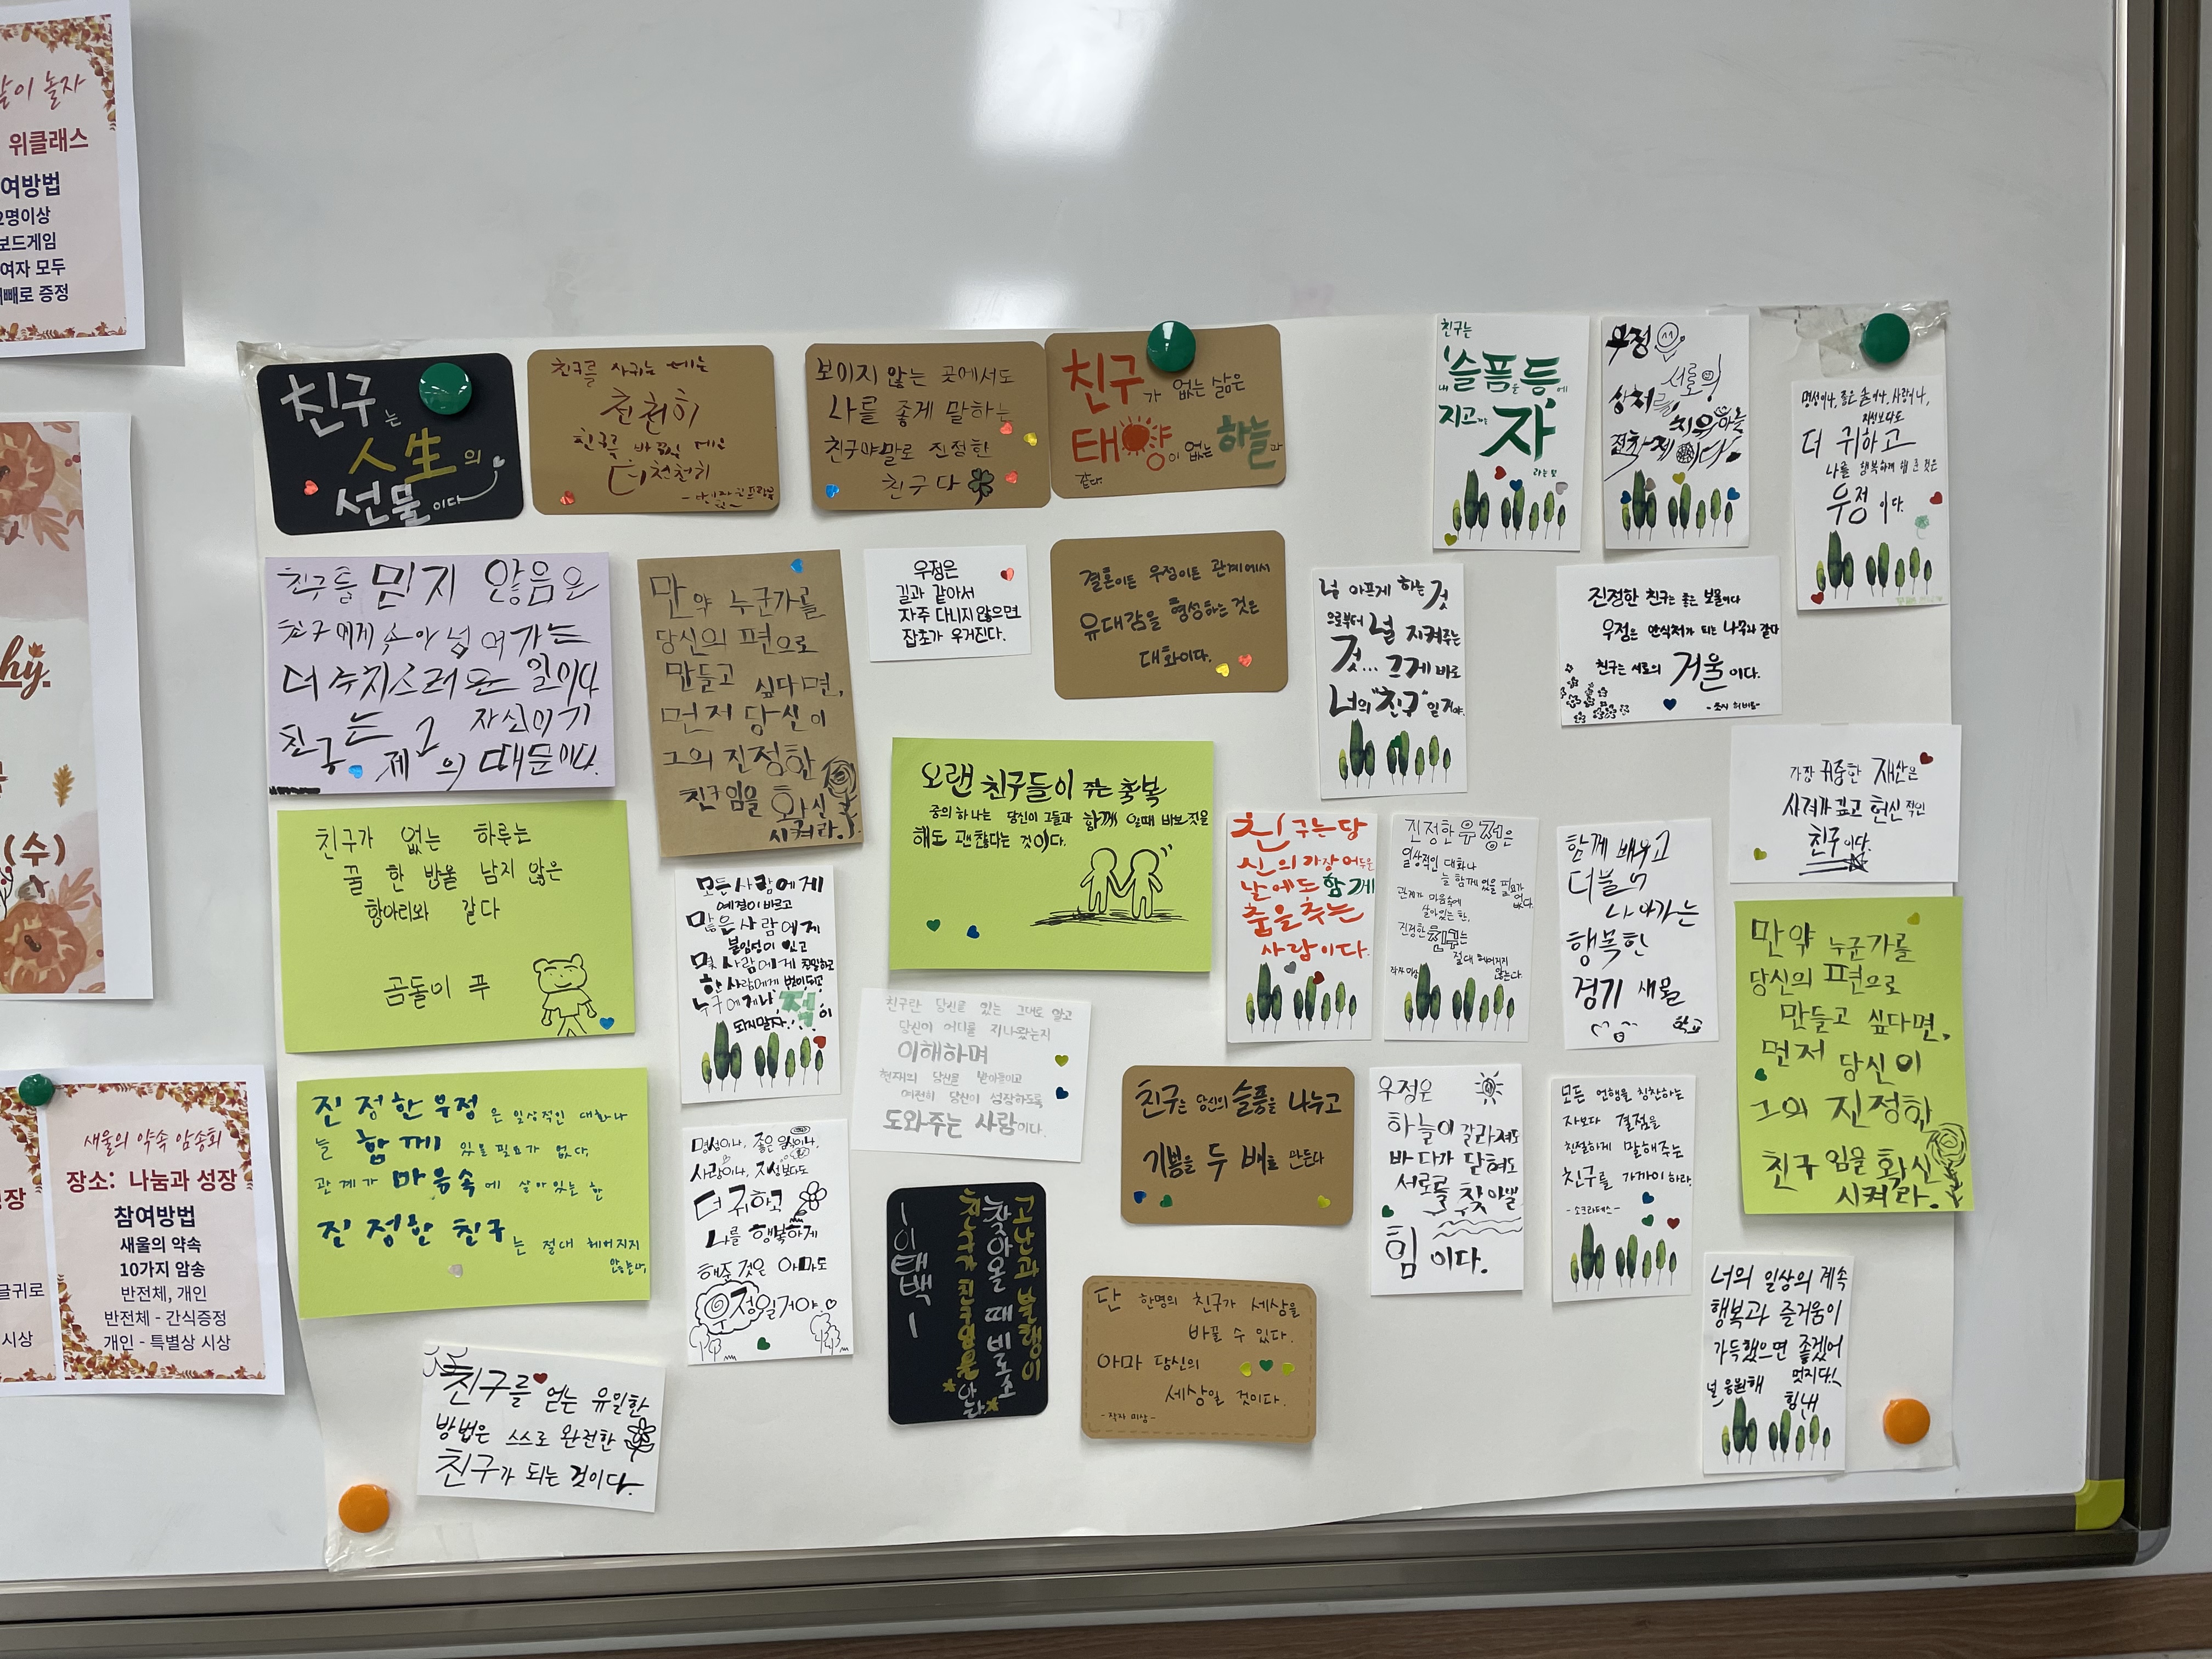 같이 놀자
위클래스
여방법
2명이상
보드게임
여자 모두
빼로 증정
hy.
(수)
장
글귀로
시상
새울의 약속 암송회
장소: 나눔과 성장
참여방법
새울의 약속
10가지 암송
반전체, 개인
반전체 - 간식증정
개인 - 특별상 시상
친구는
人生의
선물이다
친구를 사귀는 데는
천천히
친구를 바꿀 때는
더 천천히
보이지 않는 곳에서도
나를 좋게 말하는
친구야말로 진정한
친구다
친구가 없는 삶은
태양이 없는 하늘과
같다.
친구는
내 슬픔을 등에
지고 가는 자
라는 뜻
우정
서로의
상처를
치유하는
명성이나, 좋은 술이나, 사랑이나,
지성보다도
더 귀하고
나를 행복하게 해 준 것은
우정이다.
친구를 믿지 않음은
친구에게 속아 넘어가는
더 수치스러운 일이다
친구는 제2의 자신이기
때문이다.
만약 누군가를
당신의 편으로
만들고 싶다면,
먼저 당신이
그의 진정한
친구임을 확신
시켜라.
우정은
길과 같아서
자주 다니지 않으면
잡초가 우거진다.
결혼이든 우정이든 관계에서
유대감을 형성하는 것은
대화이다.
널 아프게 하는 것
으로부터 널 지켜주는
것... 그게 바로
너의 "친구"일 거야.
진정한 친구는 좋은 보물이다
우정은 안식처가 되는 나무와 같다
친구는 서로의 거울이다.
가장 귀중한 재산은
사려가 깊고 헌신적인
친구이다.
친구가 없는 하루는
꿀 한 방울 남지 않은
항아리와 같다
곰돌이 푸
모든 사람에게
예절이 바르고
많은 사람에게
붙임성이 있고
몇 사람에게 친밀하고
한 사람에게 벗이 되고
누구에게나 적이
되지말자..!
오랜 친구들이 주는 축복
중의 하나는 당신이 그들과 함께 일때 바보짓을
해도 괜찮다는 것이다.
친구는 당
신의 가장 어두운
날에도 함께
춤을 추는
사람이다.
진정한 우정은
일상적인 대화나
늘 함께 있을 필요가
없다.
관계가 마음속에
살아있는 한,
진정한 친구는
절대 헤어지지
않는다.
작자 미상
함께 배우고
더불어
나아가는
행복한
경기 새울
학교
만약 누군가를
당신의 편으로
만들고 싶다면,
먼저 당신이
그의 진정한
친구임을 확신
시켜라.
진정한 우정은 일상적인 대화나
늘 함께 있을 필요가 없다.
관계가 마음속에 살아있는 한
진정한 친구는 절대 헤어지지
않는다.
친구란 당신을 있는 그대로 알고
당신이 어디를 지나왔는지
이해하며
현재의 당신을 받아들이고
여전히 당신이 성장하도록
도와주는 사람이다.
명성이나, 좋은 음식이나,
사랑이나, 지성보다도
더 귀하고
나를 행복하게
해준 것은 아마도
우정일거야.
고난과 불행이
찾아올 때 비로소
친구가 친구임을 안다
-이태백-
친구는 당신의 슬픔을 나누고
기쁨을 두 배로 만든다
우정은
하늘이 갈라져도
바다가 닫혀도
서로를 찾아낼
힘이다.
모든 언행을 칭찬하는
자보다 결점을
친절하게 말해주는
친구를 가까이 하라.
-소크라테스-
단 한명의 친구가 세상을
바꿀 수 있다.
아마 당신의
세상일 것이다.
-작자 미상-
너의 일상의 계속
행복과 즐거움이
가득했으면 좋겠어
멋지다!
널 응원해
힘내
친구를 얻는 유일한
방법은 스스로 완전한
친구가 되는 것이다.